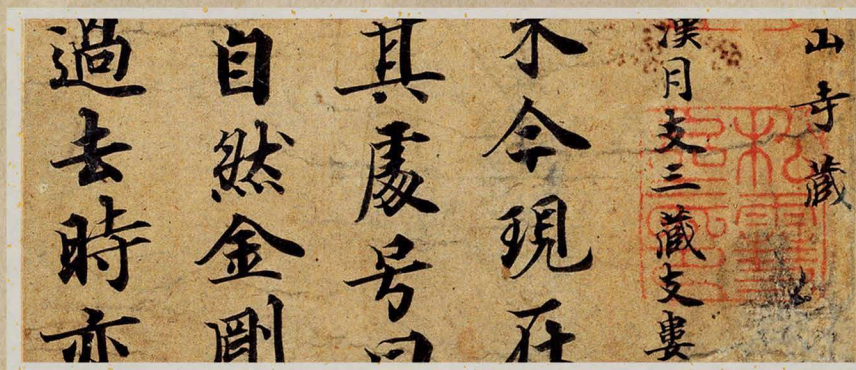 山寺藏
漢月支三藏支婁
今現在
其處号
自然金剛
過去時亦
松雪